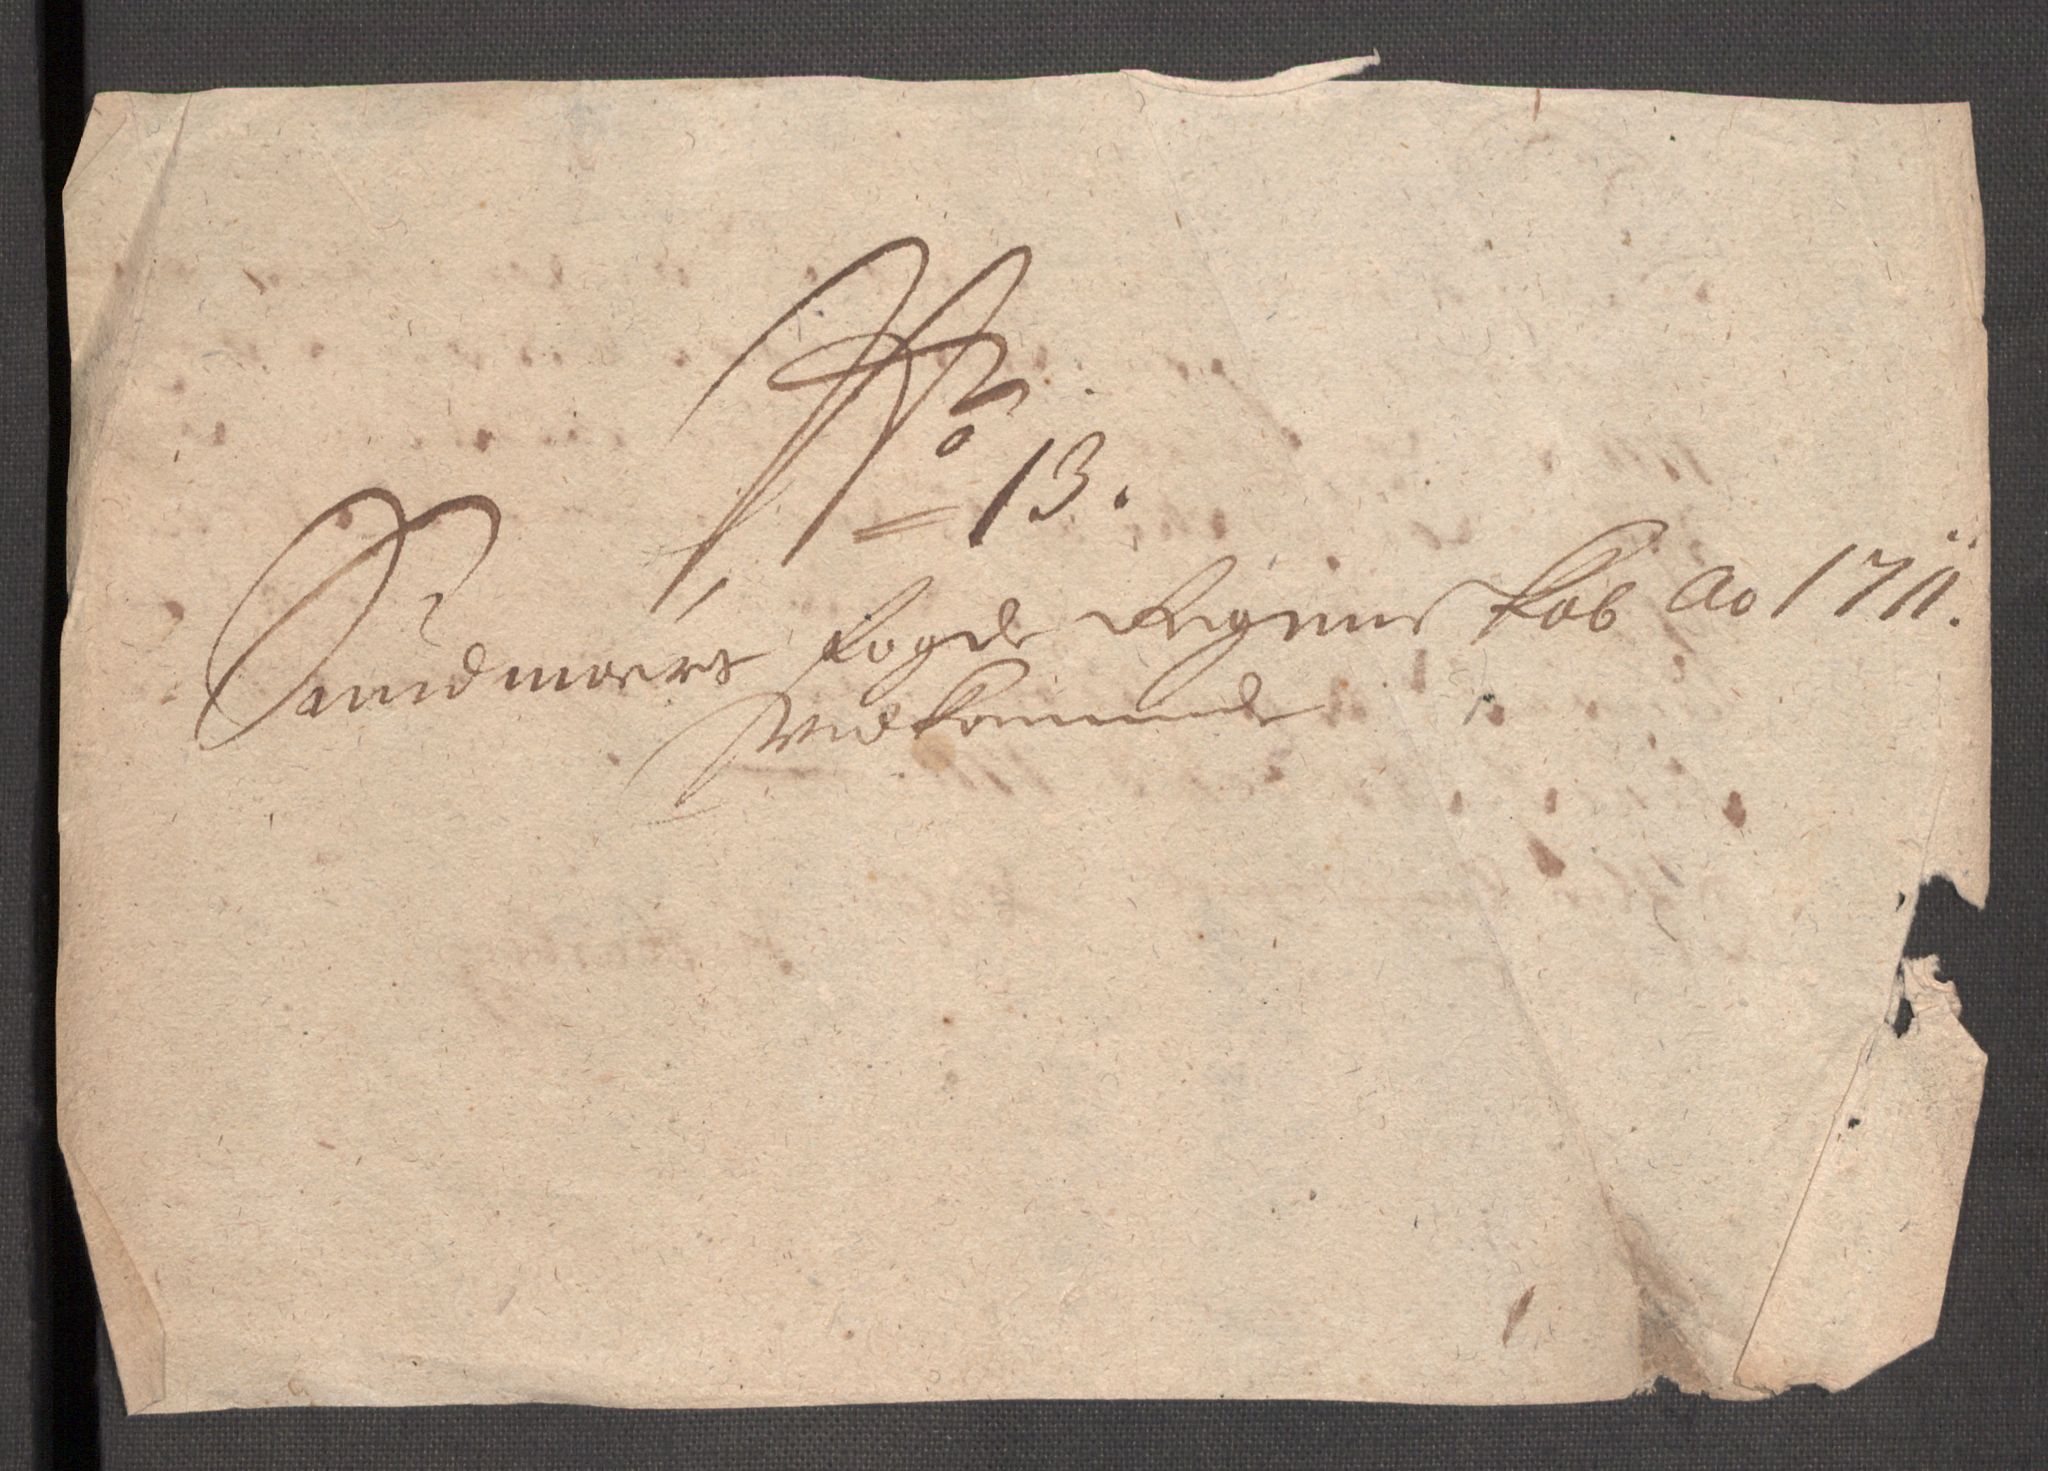 No
13.
Sundmoers fogde Regenskab Ao 1711.
Vedkommende